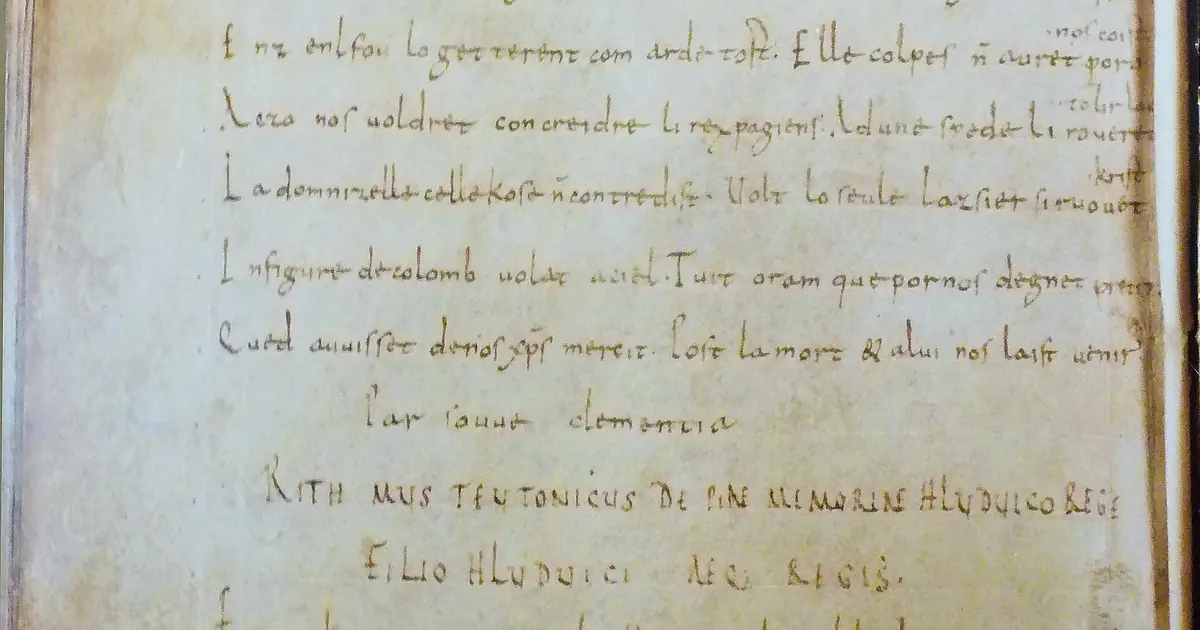 nos coist
Enz enl fou lo getterent com arde tost. Elle colpes n̄ auret poro
tolir lo
Aczo nos uoldret concreidre li rex pagiens. Ad une spede li roueret
krist
La domnizelle celle kose n̄ contredist. Volt lo seule lazsier si ruouet
In figure de colomb uolat a ciel. Tuit oram que por nos degnet preier
Qued auuisset de nos xp̄s mercit. Post la mort & a lui nos laist uenir
Par souue clementia
RITHMUS TEUTONICUS DE PIAE MEMORIAE HLUDUICO REGE
FILIO HLUDUICI AEQ; REGIS.